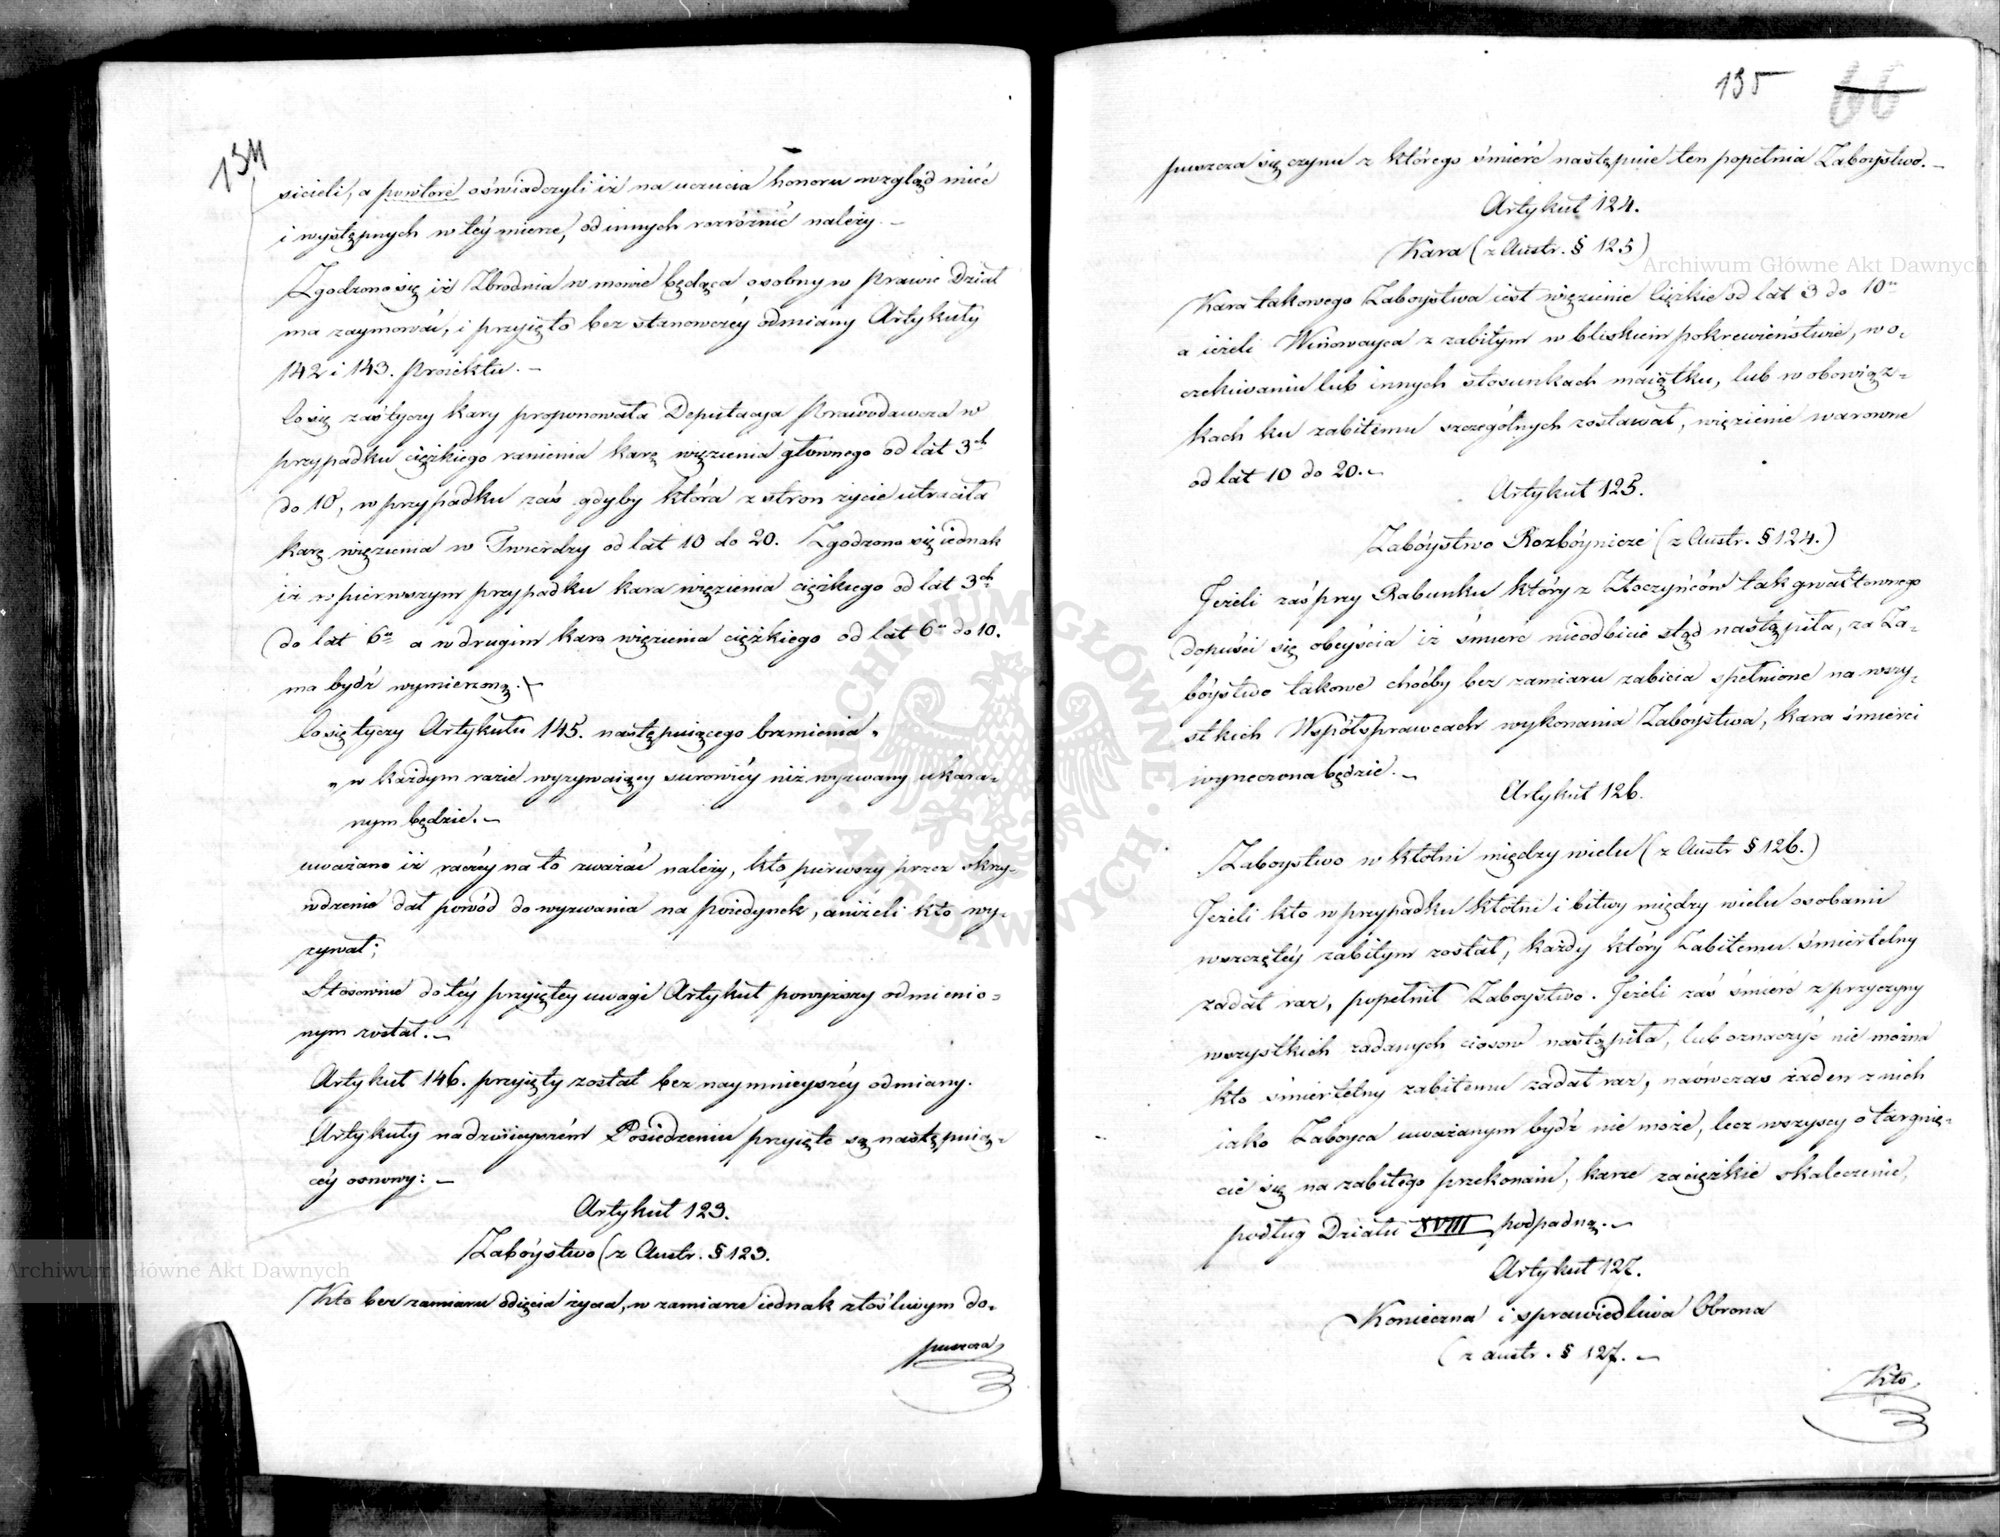 134
sicieli, a powtore oświadczyli iż na uczucia honoru wzgląd mieć
i występnych w téy mierze, od innych rozróżnić należy. –
Zgodzono się iż Zbrodnia w mowie będąca osobny w Prawie Dział
ma zaymować, i przyięto bez stanowczéy odmiany Artykuły
142 i 143. Proiektu. –
Co się zaś tyczy kary proponowała Deputacya Prawodawcza w
przypadku ciężkiego ranienia karę więzienia głównego od lat 3ch
do 10, w przypadku zaś gdyby która z stron życie utraciła
karę więzienia w Twierdzy od lat 10 do 20. Zgodzono się iednak
iż w pierwszym przypadku kara więzienia ciężkiego od lat 3ch
do lat 6u a w drugim kara więzienia ciężkiego od lat 6u do 10.
ma bydź wymierzoną. –
Co się tyczy Artykułu 145. następuiącego brzmienia „
„ w każdym razie wyzywaiący surowiéy niż wyzwany ukara-
nym będzie. –
uważano iż raczéy na to zważać należy, kto pierwszy przez skrzy-
wdzenie dał powód do wyzwania na poiedynek, aniżeli kto wy-
zywał;
Stosownie do téy przyiętey uwagi Artykuł powyższy odmienio-
nym został. –
Artykuł 146. przyięty został bez naymnieyszéy odmiany.
Artykuły na dzisieyszém Posiedzeniu przyięte są następuią-
céy osnowy: –
Artykuł 123.
Zabóystwo (z Austr. § 123.
Kto bez zamiaru odięcia życia, w zamiarze iednak złośliwym do-
puszcza
135 66
puszcza się czynu z którego śmierć następuie ten popełnia Zaboystwo. –
Artykuł 124.
Kara (z Austr. § 125)
Kara takowego Zaboystwa iest więzienie ciężkie od lat 3 do 10u
a ieżeli Winowayca z zabitym w bliskiem pokrewieństwie, w o-
czekiwaniu lub innych stosunkach maiątku, lub w obowiąz-
kach ku zabitemu szczególnych zostawał, więzienie warowne
od lat 10 do 20. –
Artykuł 125.
Zabóystwo Rozbóynicze (z Austr. § 124.)
Jeżeli zaś przy Rabunku który z Złoczyńców tak gwałtownego
dopuści się obeyścia iż śmierć nieodbicie stąd nastąpiła, za Za-
bóystwo takowe choćby bez zamiaru zabicia spełnione na wszy-
stkich Współsprawcach wykonania Zaboystwa, kara śmierci
wyrzeczona będzie. –
Artykuł 126.
Zaboystwo w kłótni między wielu (z Austr § 126.)
Jeżeli kto w przypadku kłótni i bitwy między wielu osobami
wszczętéy zabitym został, każdy który Zabitemu śmiertelny
zadał raz, popełnił Zaboystwo. Jeżeli zaś śmierć z przyczyny
wszystkich zadanych ciosow nastąpiła, lub oznaczyć nie można
kto śmiertelny zabitemu zadał raz, naówczas żaden z nich
iako Zaboyca uważanym bydź nie może, lecz wszyscy o targnię-
cie się na zabitego przekonani, karze za ciężkie skaleczenie,
podług Działu XVIII podpadną. –
Artykuł 127.
Konieczna i sprawiedliwa Obrona
(z austr. § 127. –
Kto
Archiwum Główne Akt Dawnych
Archiwum Główne Akt Dawnych
ARCHIWUM GŁÓWNE AKT DAWNYCH